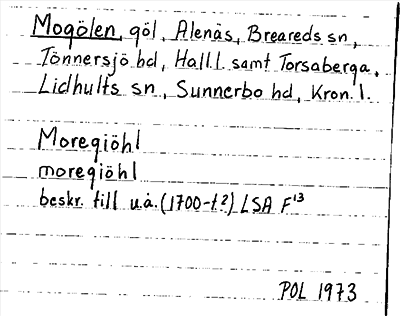 Mogölen, göl, Alenäs, Breareds sn,
Tönnersjö hd, Hall.l samt Torsaberga,
Lidhults sn, Sunnerbo hd, Kron.l.
Moregiöhl
moregiöhl
beskr. till u.å. (1700-t?) LSA F¹³
POL 1973